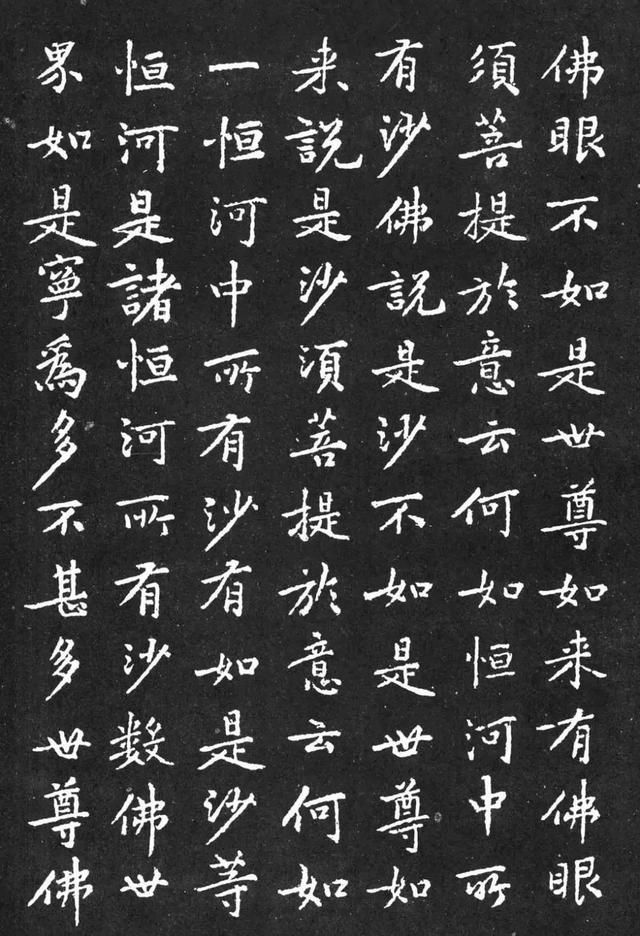 佛眼不如是世尊如来有佛眼
須菩提於意云何如恒河中所
有沙佛說是沙不如是世尊如
来説是沙須菩提於意云何如
一恒河中所有沙有如是沙等
恒河是諸恒河所有沙數佛世
界如是寧為多不甚多世尊佛